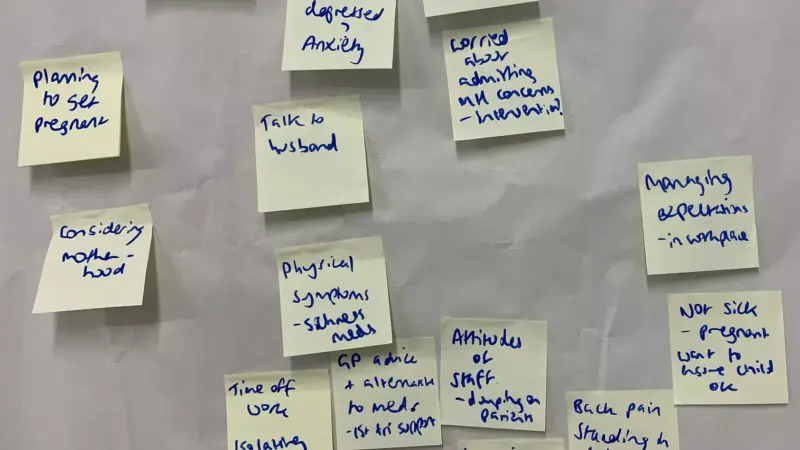 depressed
?
Anxiety
Worried
about
admitting
MH concerns
- Intervention?
Planning
to get
pregnant
Talk to
husband
Managing
expectations
- in workplace
Considering
mother-
hood
Physical
symptoms
- sickness
meds
Not sick
- pregnant
want to
have child
ok
Attitudes
of
staff
- dumping on
patients
GP advice
+ alternate
to meds
- 1st tri support
Time off
work
Isolating
Back pain
Standing